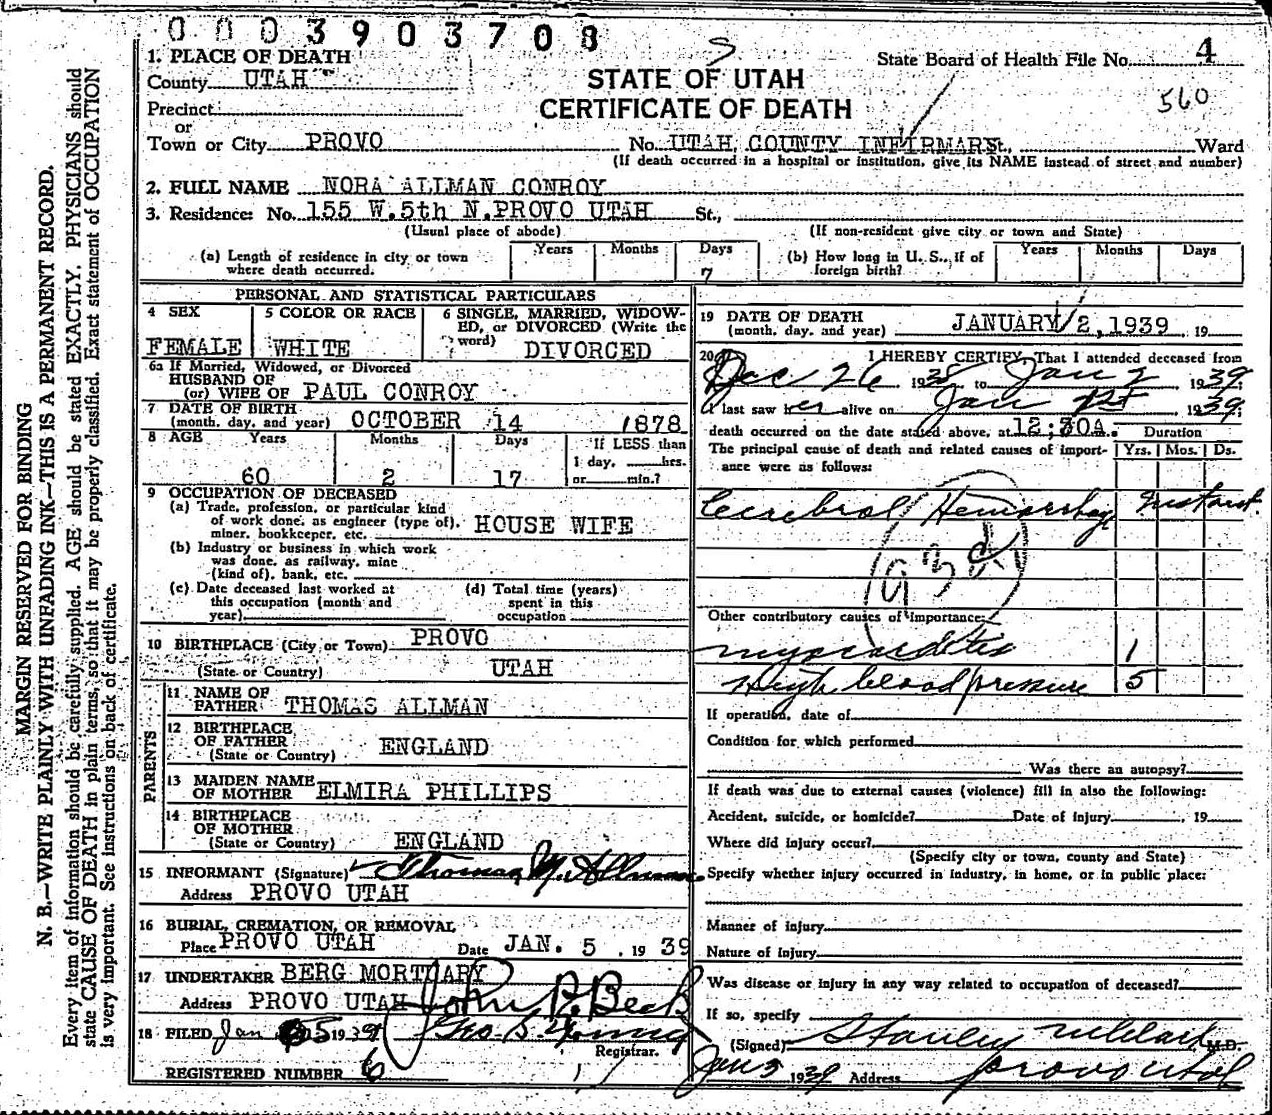 0003903708
S
State Board of Health File No. 4
560
STATE OF UTAH
CERTIFICATE OF DEATH
1. PLACE OF DEATH
County UTAH
Precinct
or
Town or City PROVO No. UTAH COUNTY INFIRMARY St., Ward
(If death occurred in a hospital or institution, give its NAME instead of street and number)
2. FULL NAME NORA ALLMAN CONROY
3. Residence: No. 155 W.5th N.PROVO UTAH St.,
(Usual place of abode) (If non-resident give city or town and State)
(a) Length of residence in city or town where death occurred. Years Months Days 7
(b) How long in U. S., if of foreign birth? Years Months Days
PERSONAL AND STATISTICAL PARTICULARS
4 SEX
FEMALE
5 COLOR OR RACE
WHITE
6 SINGLE, MARRIED, WIDOW-
ED, or DIVORCED (Write the
word) DIVORCED
6a If Married, Widowed, or Divorced
HUSBAND OF
(or) WIFE OF PAUL CONROY
7 DATE OF BIRTH
(month, day, and year) OCTOBER 14 1878
8 AGE Years Months Days If LESS than
1 day, hrs.
60 2 17 or min.?
9 OCCUPATION OF DECEASED
(a) Trade, profession, or particular kind
of work done, as engineer (type of),
miner, bookkeeper, etc. HOUSE WIFE
(b) Industry or business in which work
was done, as railway, mine
(kind of), bank, etc.
(c) Date deceased last worked at
this occupation (month and
year)
(d) Total time (years)
spent in this
occupation
10 BIRTHPLACE (City or Town) PROVO
(State or Country) UTAH
PARENTS
11 NAME OF
FATHER THOMAS ALLMAN
12 BIRTHPLACE
OF FATHER ENGLAND
(State or Country)
13 MAIDEN NAME
OF MOTHER ELMIRA PHILLIPS
14 BIRTHPLACE
OF MOTHER
(State or Country) ENGLAND
15 INFORMANT (Signature) Thomas M. Allman
Address PROVO UTAH
16 BURIAL, CREMATION, OR REMOVAL
Place PROVO UTAH Date JAN. 5, 1939
17 UNDERTAKER BERG MORTUARY
Address PROVO UTAH John P. Beck
18 FILED Jan 5 1939
Registrar.
REGISTERED NUMBER 6
19 DATE OF DEATH
(month, day, and year) JANUARY 2, 1939, 19
20 I HEREBY CERTIFY, That I attended deceased from
Dec 26 1938 to Jan 2 1939;
I last saw her alive on Jan 1st 1939;
death occurred on the date stated above, at 12;30A.
The principal cause of death and related causes of import-
ance were as follows:
Duration
Yrs. Mos. Ds.
Cerebral Hemorrhage Instant.
Other contributory causes of importance:
myocarditis 1
High blood pressure 5
If operation, date of
Condition for which performed
Was there an autopsy?
If death was due to external causes (violence) fill in also the following:
Accident, suicide, or homicide? Date of injury , 19
Where did injury occur?
(Specify city or town, county and State)
Specify whether injury occurred in industry, in home, or in public place:
Manner of injury
Nature of injury
Was disease or injury in any way related to occupation of deceased?
If so, specify
(Signed) Stanley M.D.
Jan 5 1939 Address Provo Utah
MARGIN RESERVED FOR BINDING
N. B.—WRITE PLAINLY WITH UNFADING INK—THIS IS A PERMANENT RECORD.
Every item of information should be carefully supplied. AGE should be stated EXACTLY. PHYSICIANS should
state CAUSE OF DEATH in plain terms, so that it may be properly classified. Exact statement of OCCUPATION
is very important. See instructions on back of certificate.